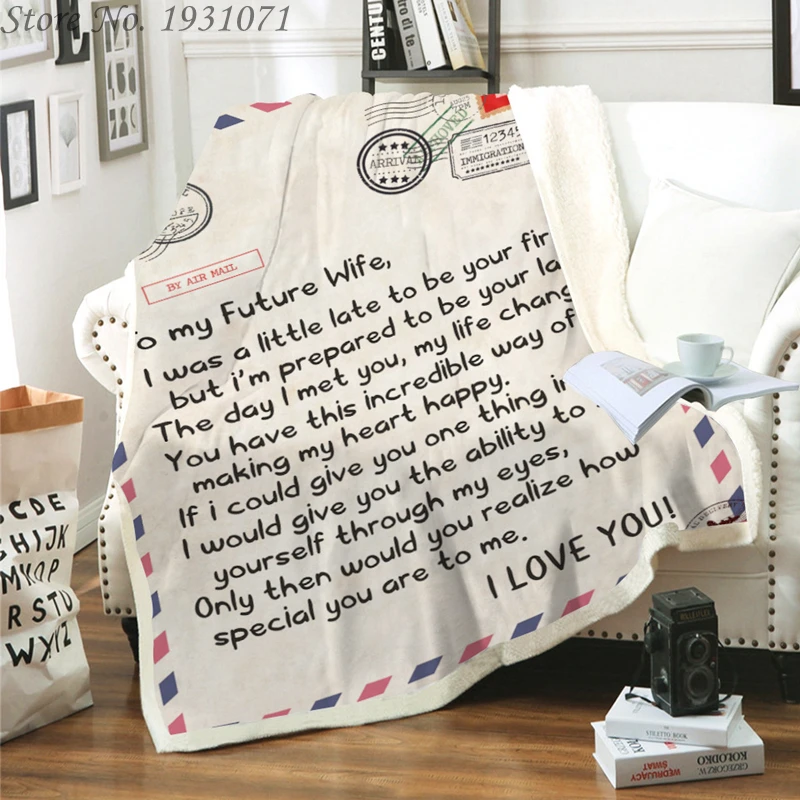 Store No. 1931071
CENTU
tro di te
ARRIVAL
12345
IMMIGRATION
BY AIR MAIL
o my Future Wife,
I was a little late to be your fir
but i'm prepared to be your la
The day I met you, my life chang
You have this incredible way of
making my heart happy.
If i could give you one thing in
I would give you the ability to
yourself through my eyes,
Only then would you realize how
special you are to me.
I LOVE YOU!
CDE
GHIJK
MNOP
R STU
WXYZ
ROLLEIFLEX
STILETTO BOOK
GRZEGORZ
KOŁODKO
WĘDRUJĄCY
ŚWIAT